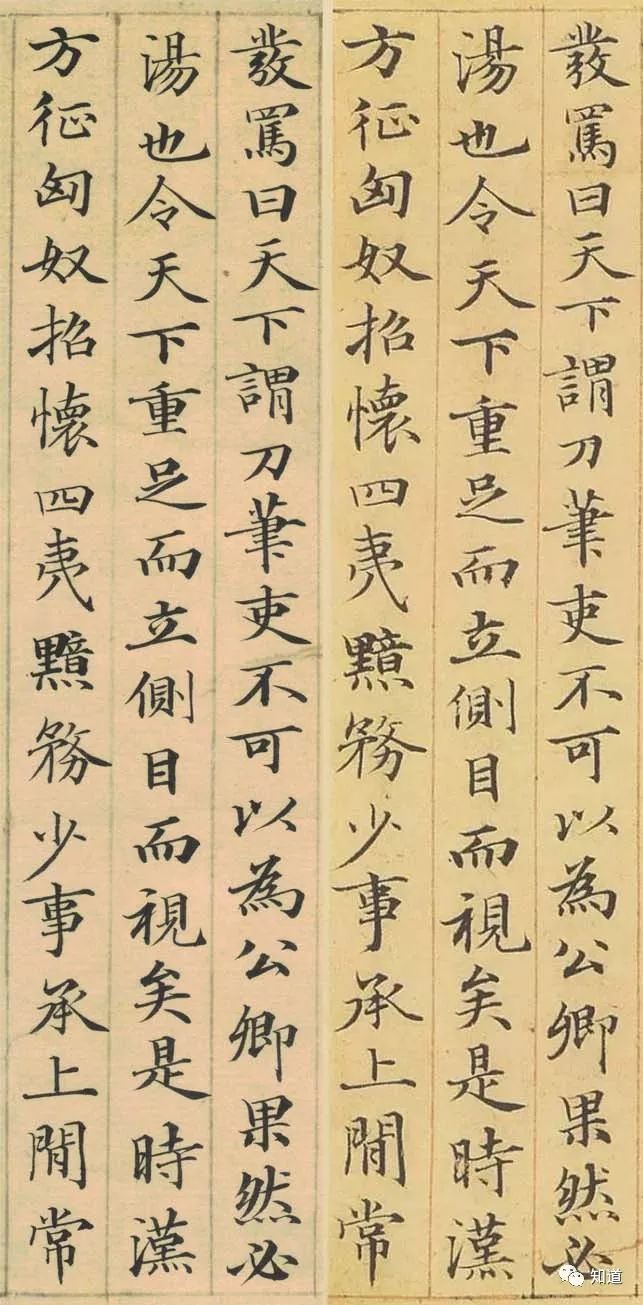 發罵曰天下謂刀筆吏不可以為公卿果然必
湯也令天下重足而立側目而視矣是時漢
方征匈奴招懷四夷黯務少事承上閒常
發罵曰天下謂刀筆吏不可以為公卿果然必
湯也令天下重足而立側目而視矣是時漢
方征匈奴招懷四夷黯務少事承上閒常
知道